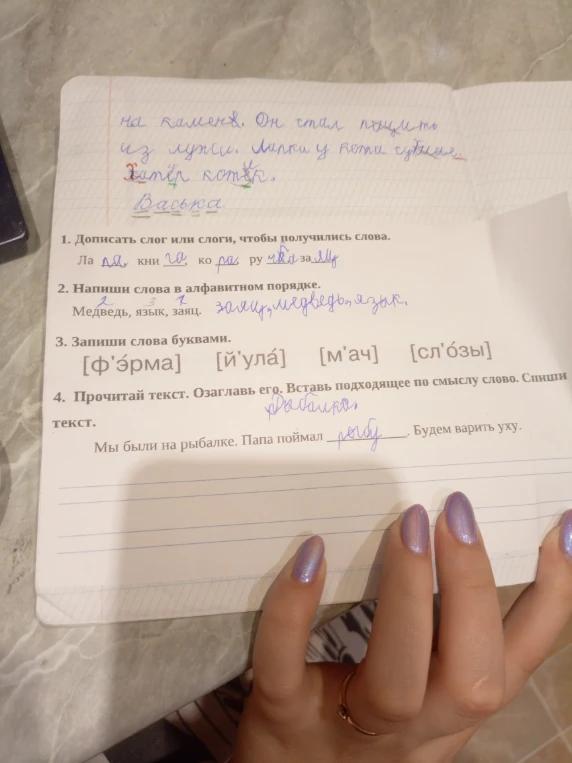 на камень. Он стал тащить
из лужи. Лапки у кота
Хатёр котёк.
Васька
1. Дописать слог или слоги, чтобы получились слова.
Ла па, кни га, ко ра, ру чка за яц
2. Напиши слова в алфавитном порядке.
2 3 1
Медведь, язык, заяц. заяц, медведь, язык.
3. Запиши слова буквами.
[ф'э́рма] [й'ула́] [м'ач] [сл'о́зы]
4. Прочитай текст. Озаглавь его. Вставь подходящее по смыслу слово. Спиши
текст. Рыбалка.
Мы были на рыбалке. Папа поймал рыбу. Будем варить уху.